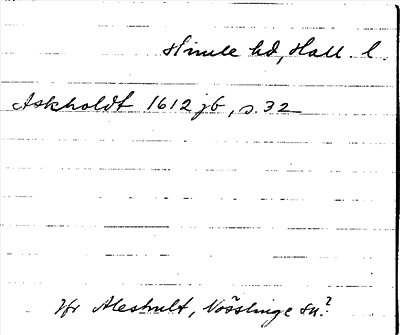 Himle hd, Hall. l.
Askholdt 1612 jb, s. 32
Jfr Aleshult, Nösslinge sn?